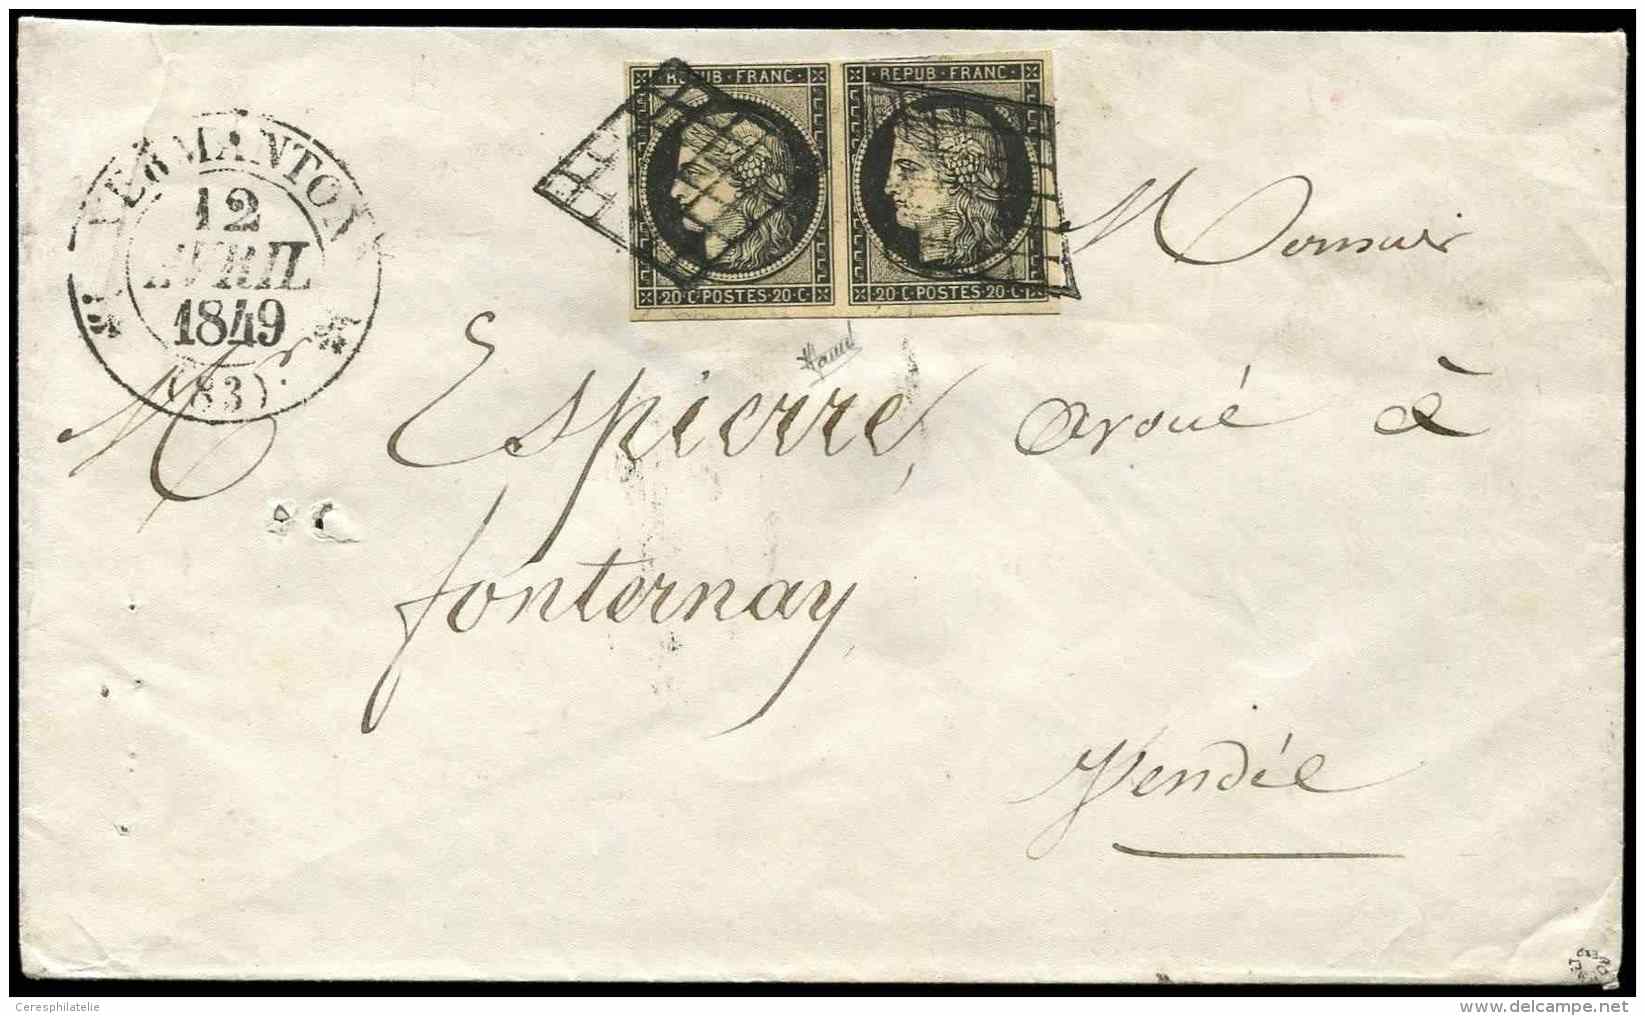 REPUB · FRANC · REPUB · FRANC ·
20 · C · POSTES · 20 · C · 20 · C · POSTES · 20 · C ·
VERMANTON
12
AVRIL
1849
(83)
Monsieur
Mr Espierre, avoué à
fonternay
Vendée
Ceresphilatelie
www.delcampe.net